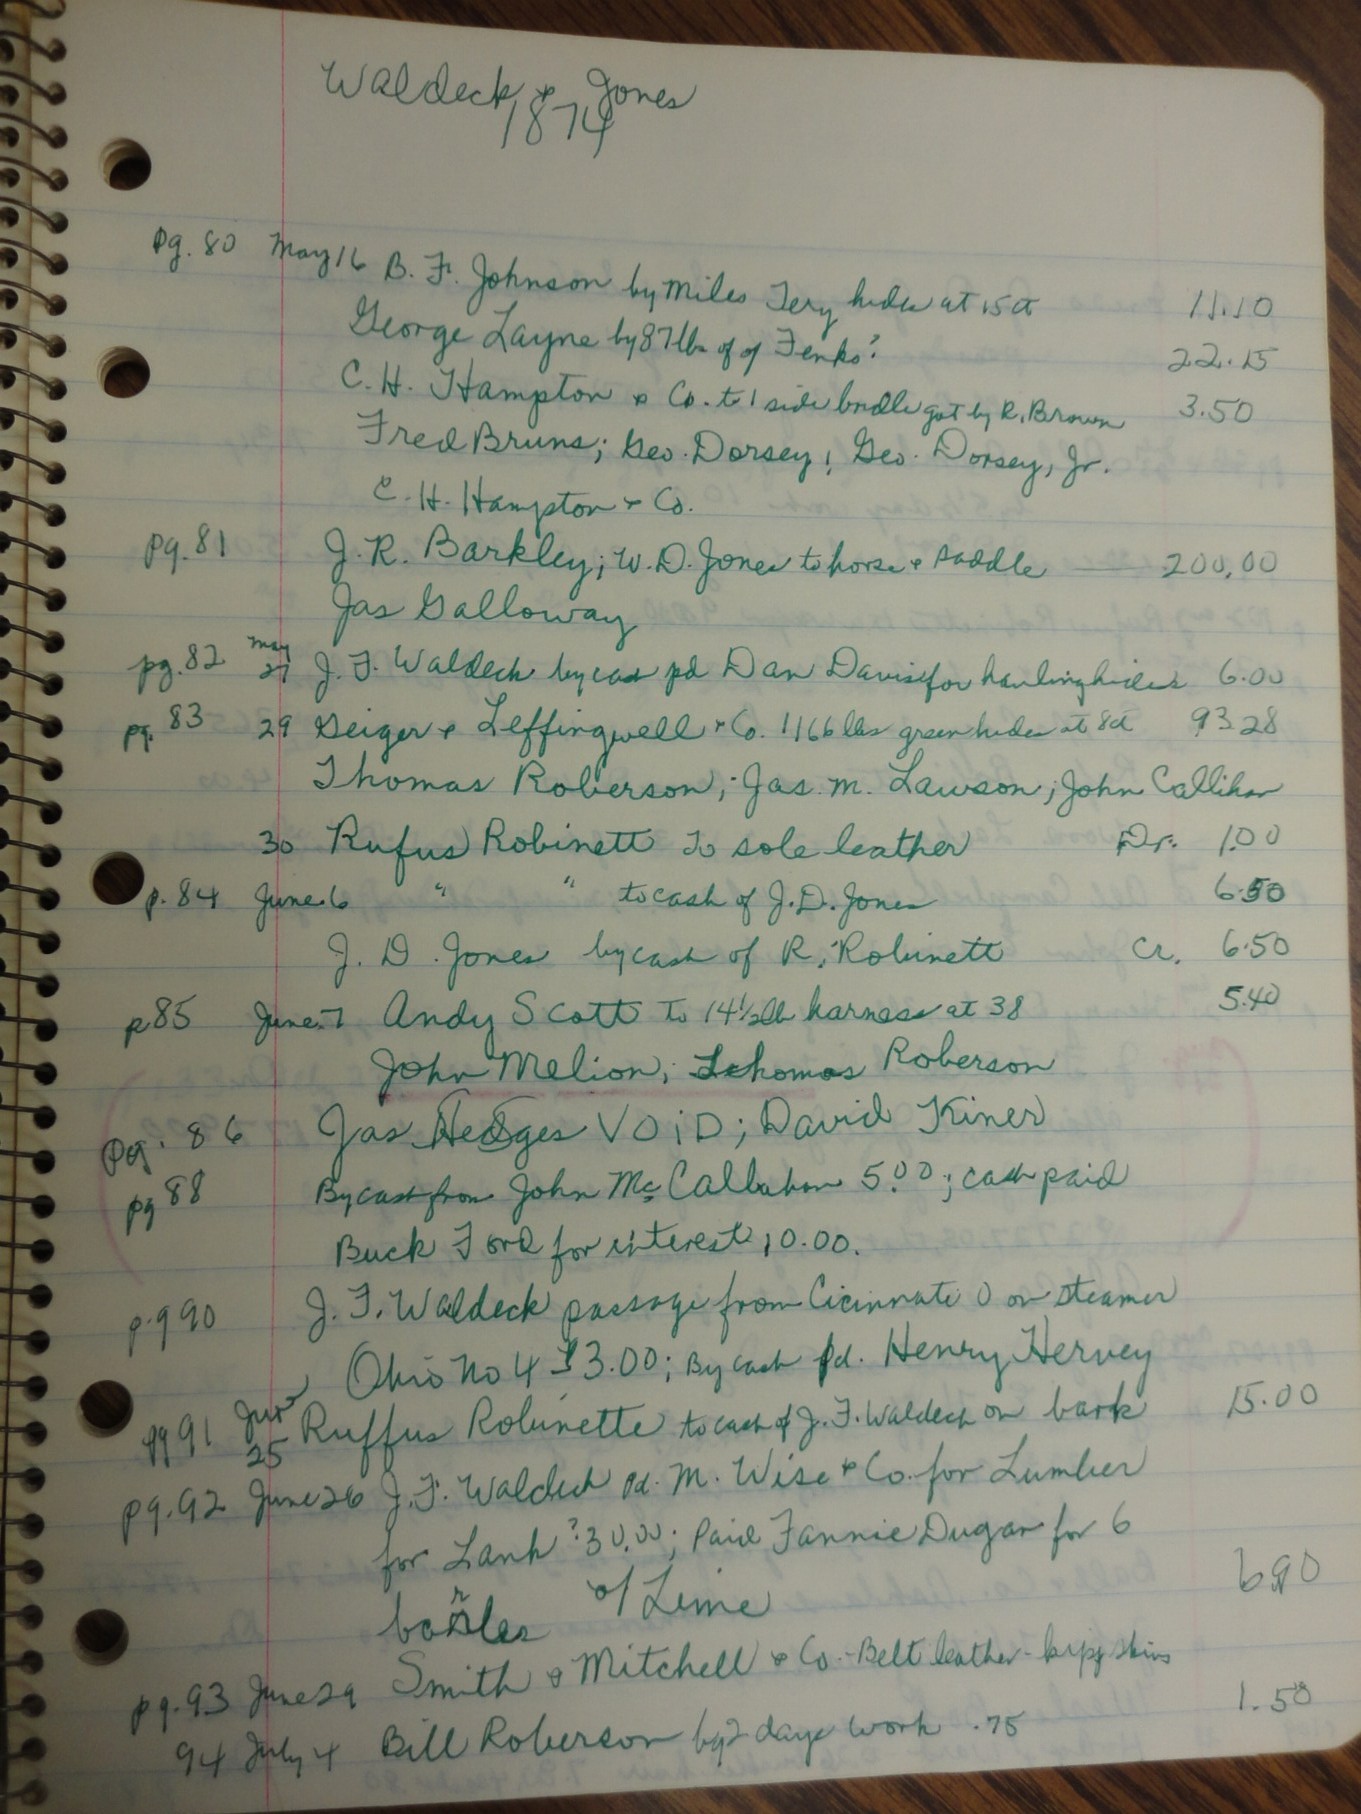 Waldeck & Jones
1874
pg. 80 May 16 B. F. Johnson by Miles Tery hides at 15 ct 11.10
George Layne by 87 lbs of of Fenks? 22.15
C. H. Hampton & Co. to 1 side bridle got by R. Brown 3.50
Fred Bruns; Geo. Dorsey; Geo. Dorsey, Jr.
C. H. Hampton & Co.
pg. 81 J. R. Barkley; W. D. Jones to horse & saddle 200.00
Jas Galloway
pg. 82 May 27 J. F. Waldeck by cash pd Dan Davis for hauling hides 6.00
pg. 83 29 Geiger & Leffingwell & Co. 1166 lbs green hides at 8ct 93 28
Thomas Roberson; Jas. M. Lawson; John Callihan
30 Rufus Robinett To sole leather Dr. 1.00
p. 84 June 6 " " to cash of J. D. Jones 6.50
J. D. Jones by cash of R. Robinett Cr. 6.50
p 85 June 7 Andy Scott To 14 1/2 lb harness at 38 5.40
John Melion; Thomas Roberson
Pg. 86 Jas Hedges VOiD; David Kiner
pg 88 By cash from John Mc Callahan 5.00; cash paid
Buck Ford for interest 10.00.
pg 90 J. F. Waldeck passage from Cicinnate O on steamer
Ohio No 4 $3.00; By cash pd. Henry Hervey
pg 91 June 25 Ruffus Robinette to cash of J. F. Waldeck on bark 15.00
pg. 92 June 26 J. F. Waldeck pd. M. Wise & Co. for Lumber
for Lank ? 30.00; Paid Fannie Dugan for 6
barles of Lime 6.90
pg. 93 June 29 Smith & Mitchell & Co. - Belt leather - kipp skins
94 July 4 Bill Roberson by 2 days work .75 1.50